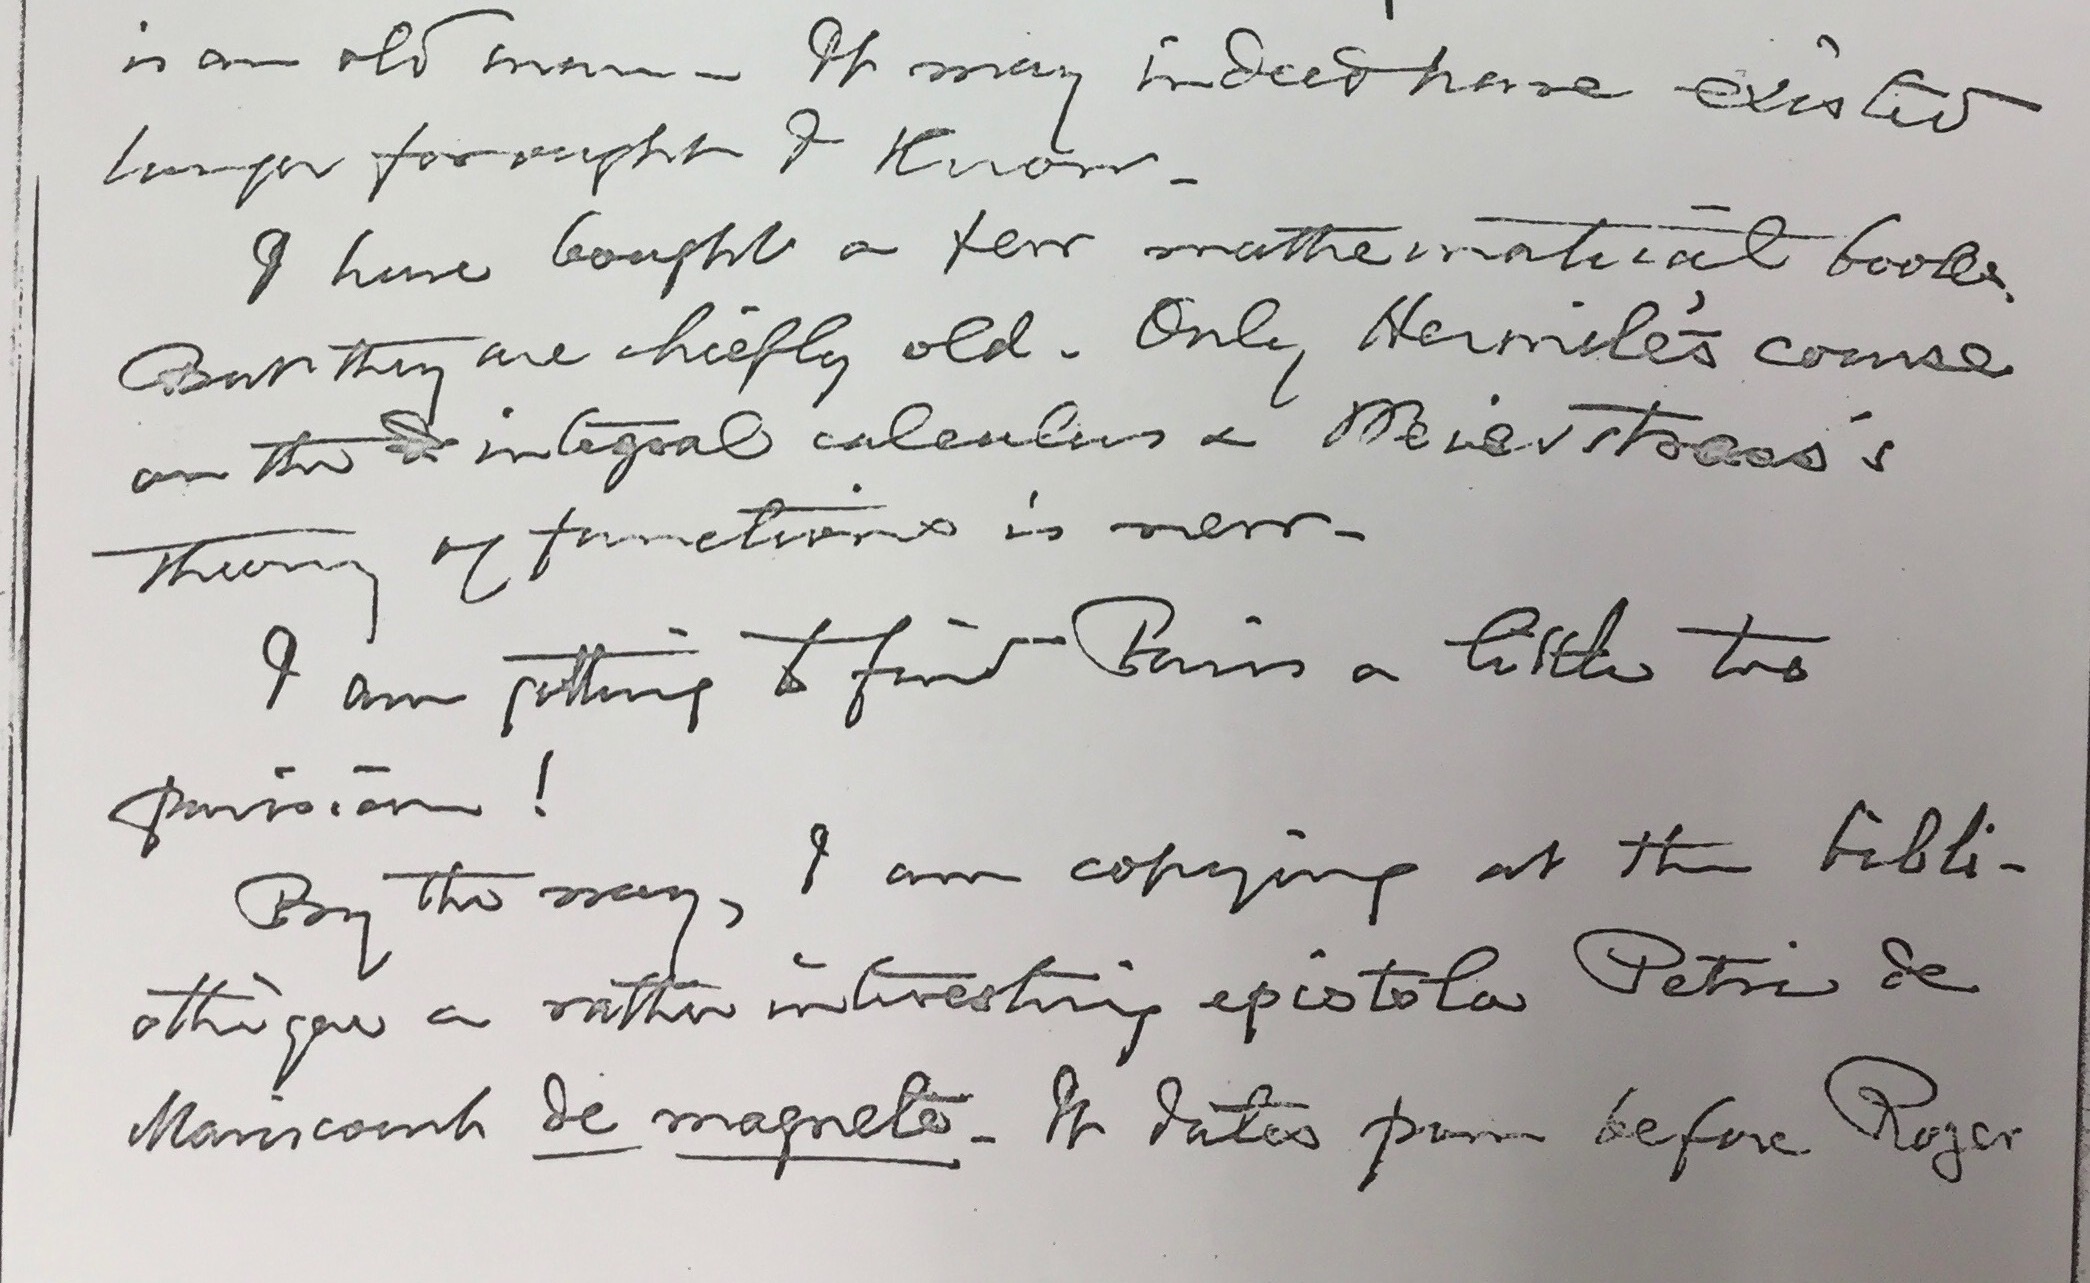 is an old man – It may indeed have existed
longer for ought I know –
I have bought a few mathematical books.
But they are chiefly old. Only Hermite's course
on the integral calculus & Meierstrass's
theory of functions is new –
I am getting to find Paris a little too
parisian !
By the way, I am copying at the bibli-
othèque a rather interesting epistola Petri de
Maricourt de magnete – It dates from before Roger